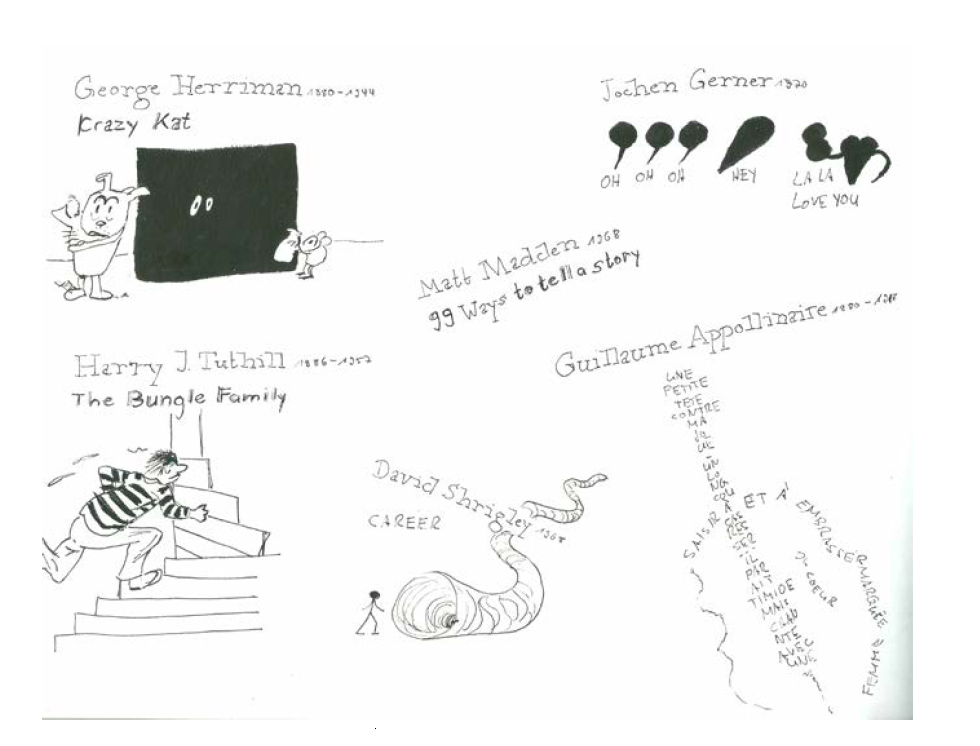 George Herriman 1880-1944
Krazy Kat
Jochen Gerner 1970
OH OH OH HEY LA LA
LOVE YOU
Matt Madden 1968
99 Ways to tell a story
Harry J. Tuthill 1886-1957
The Bungle Family
David Shrigley 1968
CAREER
Guillaume Appollinaire 1880-1918
UNE
PETITE
TETE
CONTRE
MA
JO
UE
UN
LO
NG
COU
A
CAS
RES
SER
IL
PAR
AIT
TIMIDE
MAIS
NTE
AVEC
UNE
SAISIR ET À
COEUR
FEMME